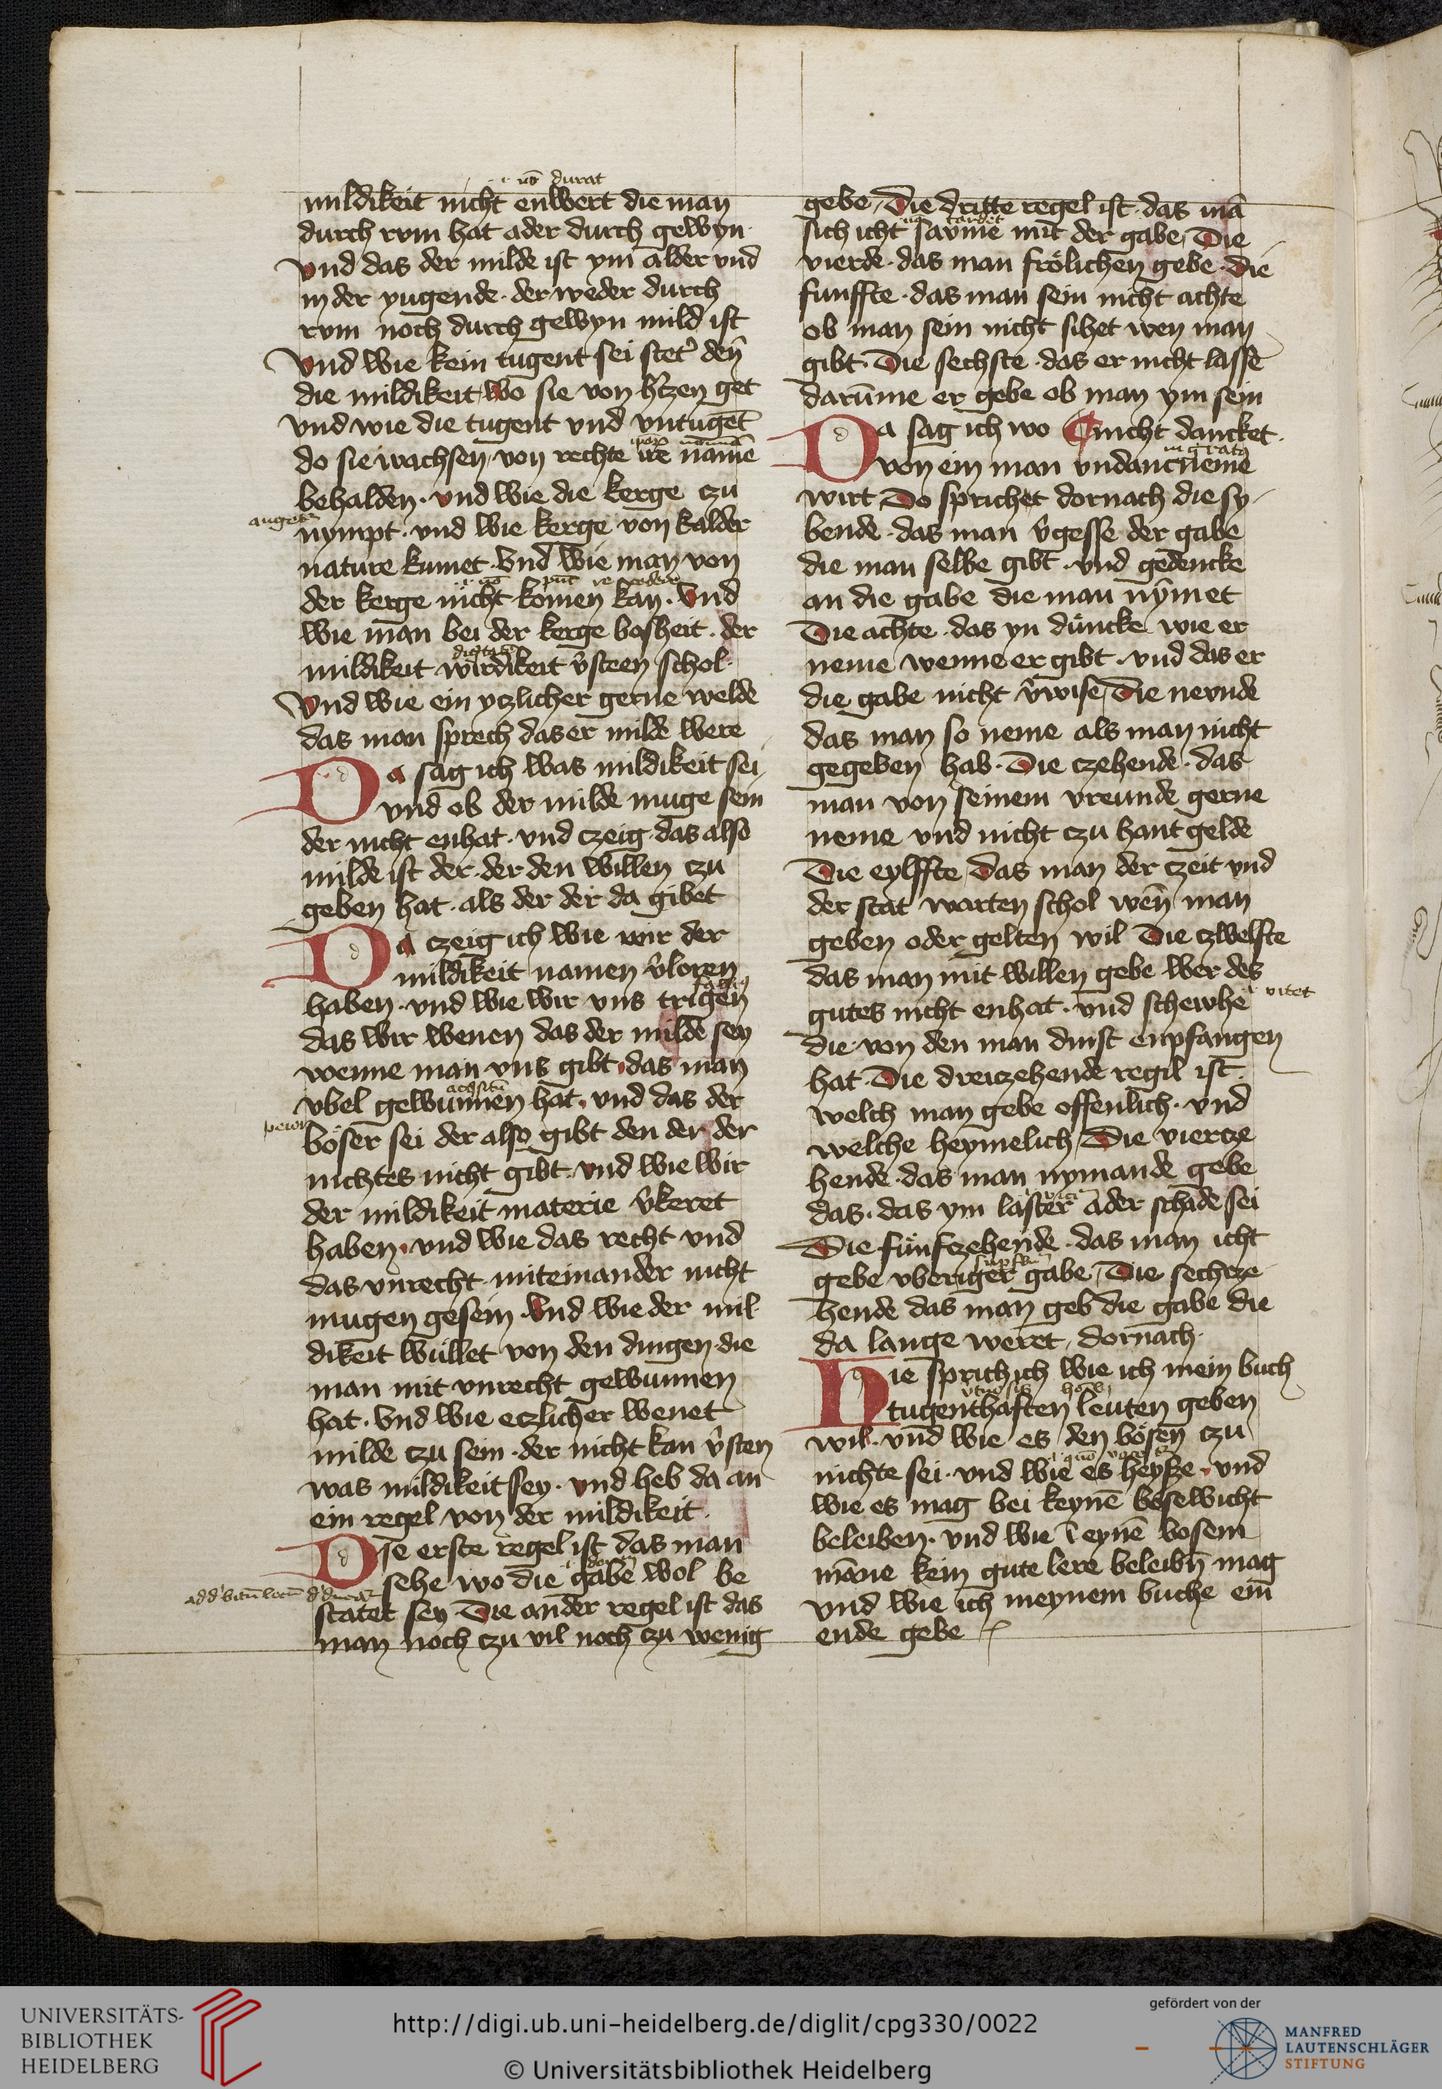 i· nō durat
mildikeit nicht enwert die man
durch rvm hat ader durch gewyn·
vnd das der milde ist ym alder vnd
in der yugende· der weder durch
rvm noch durch gewyn mild ist
Vnd wie kein tugent sei stet' den̄
die mildikeit wo sie von h'tzen get
vnd wie die tugent vnd vntugēt
do sie wachsen von rechte ire namē
behalden· vnd wie die kerge czu
nympt· vnd wie kerge von kalder
nature kumet· Vnd wie man von
der kerge nicht komen kan· Vnd
wie man bei der kerge bosheit· der
mildikeit wirdikeit v'steen schol·
Vnd wie ein yczlicher gerne welde
das man sprech das er milde were
Da sag ich was mildikeit sei
vnd ob der milde muge sein
der nicht enhat· vnd czeig das also
milde ist der· der den willen czu
geben hat· als der der da gibet
Da czeig ich wie wir der
mildikeit namen v'loren
haben· vnd wie wir vns trigen
das wir wenen das der milde sey
wenne man vns gibt· das man
vbel gewunnen hat· vnd das der
böser sei der also gibt den der der
nichtes nicht gibt· vnd wie wir
der mildikeit materie v'keret
haben· vnd wie das recht vnd
das vnrecht miteinander nicht
mugen gesein· Vnd wie der mil
dikeit wullet von den dingen die
man mit vnrecht gewunnen
hat· Vnd wie eczlicher wenet
milde czu sein· der nicht kan v'sten
was mildikeit sey· vnd heb da an
ein regel von der mildikeit·
Die erste regel ist das man
sehe wo die gabe wol be
statet sey Die ander regel ist das
man noch czu vil noch czu wenig
gebe, Die dritte regel ist· das mā
sich icht savme mit der gabe, Die
vierde· das man frölichen gebe· die
funffte· das man sein nicht achte
ob man sein nicht sihet wen man
gibt· Die sechste· das er nicht lasse
darūme er gebe ob man ym sein
Da sag ich wo nicht dancket·
von ein man vndancneme
wirt Do sprichet dornach die sy
bende· das man v'gesse der gabe
die man selbe gibt· vnd gedencke
an die gabe die man nymet
Die achte· das yn duncke wie er
neme wenne er gibt· vnd das er
die gabe nicht v'wise, Die nevnde
das man so neme als man nicht
gegeben hab· Die czehende· das
man von seinem vreunde gerne
neme vnd nicht czu hant gelde
Die eylffte, Das man der czeit vnd
der stat warten schol wen̄ man
geben oder gelten wil Die czwelfte
das man mit willen gebe wer des
gutes nicht enhat· vnd schewhe
die von den man dinst enpfangen
hat· Die dreiczehende regil ist·
welch man gebe offenlich· vnd
welche heymelich, Die viercze
hende· das man nymande gebe
das· das ym laster ader schade sei
Die funfczehende· das man icht
gebe vberiger gabe, Die sechcze
hende das man geb die gabe die
da lange weret, dornach·
Hie sprich ich wie ich mein buch
tugenthaften leuten geben
wil· vnd wie es den bösen czu
nichte sei· vnd wie es heysze· vnd
wie es mag bei keynē bösewicht
beleiben· vnd wie ī eynē bosem
māne kein gute lere beleibn̄ mag
vnd wie ich meynem buche ein
ende gebe
UNIVERSITÄTS-
BIBLIOTHEK
HEIDELBERG
http://digi.ub.uni-heidelberg.de/diglit/cpg330/0022
© Universitätsbibliothek Heidelberg
gefördert von der
MANFRED
LAUTENSCHLÄGER
STIFTUNG